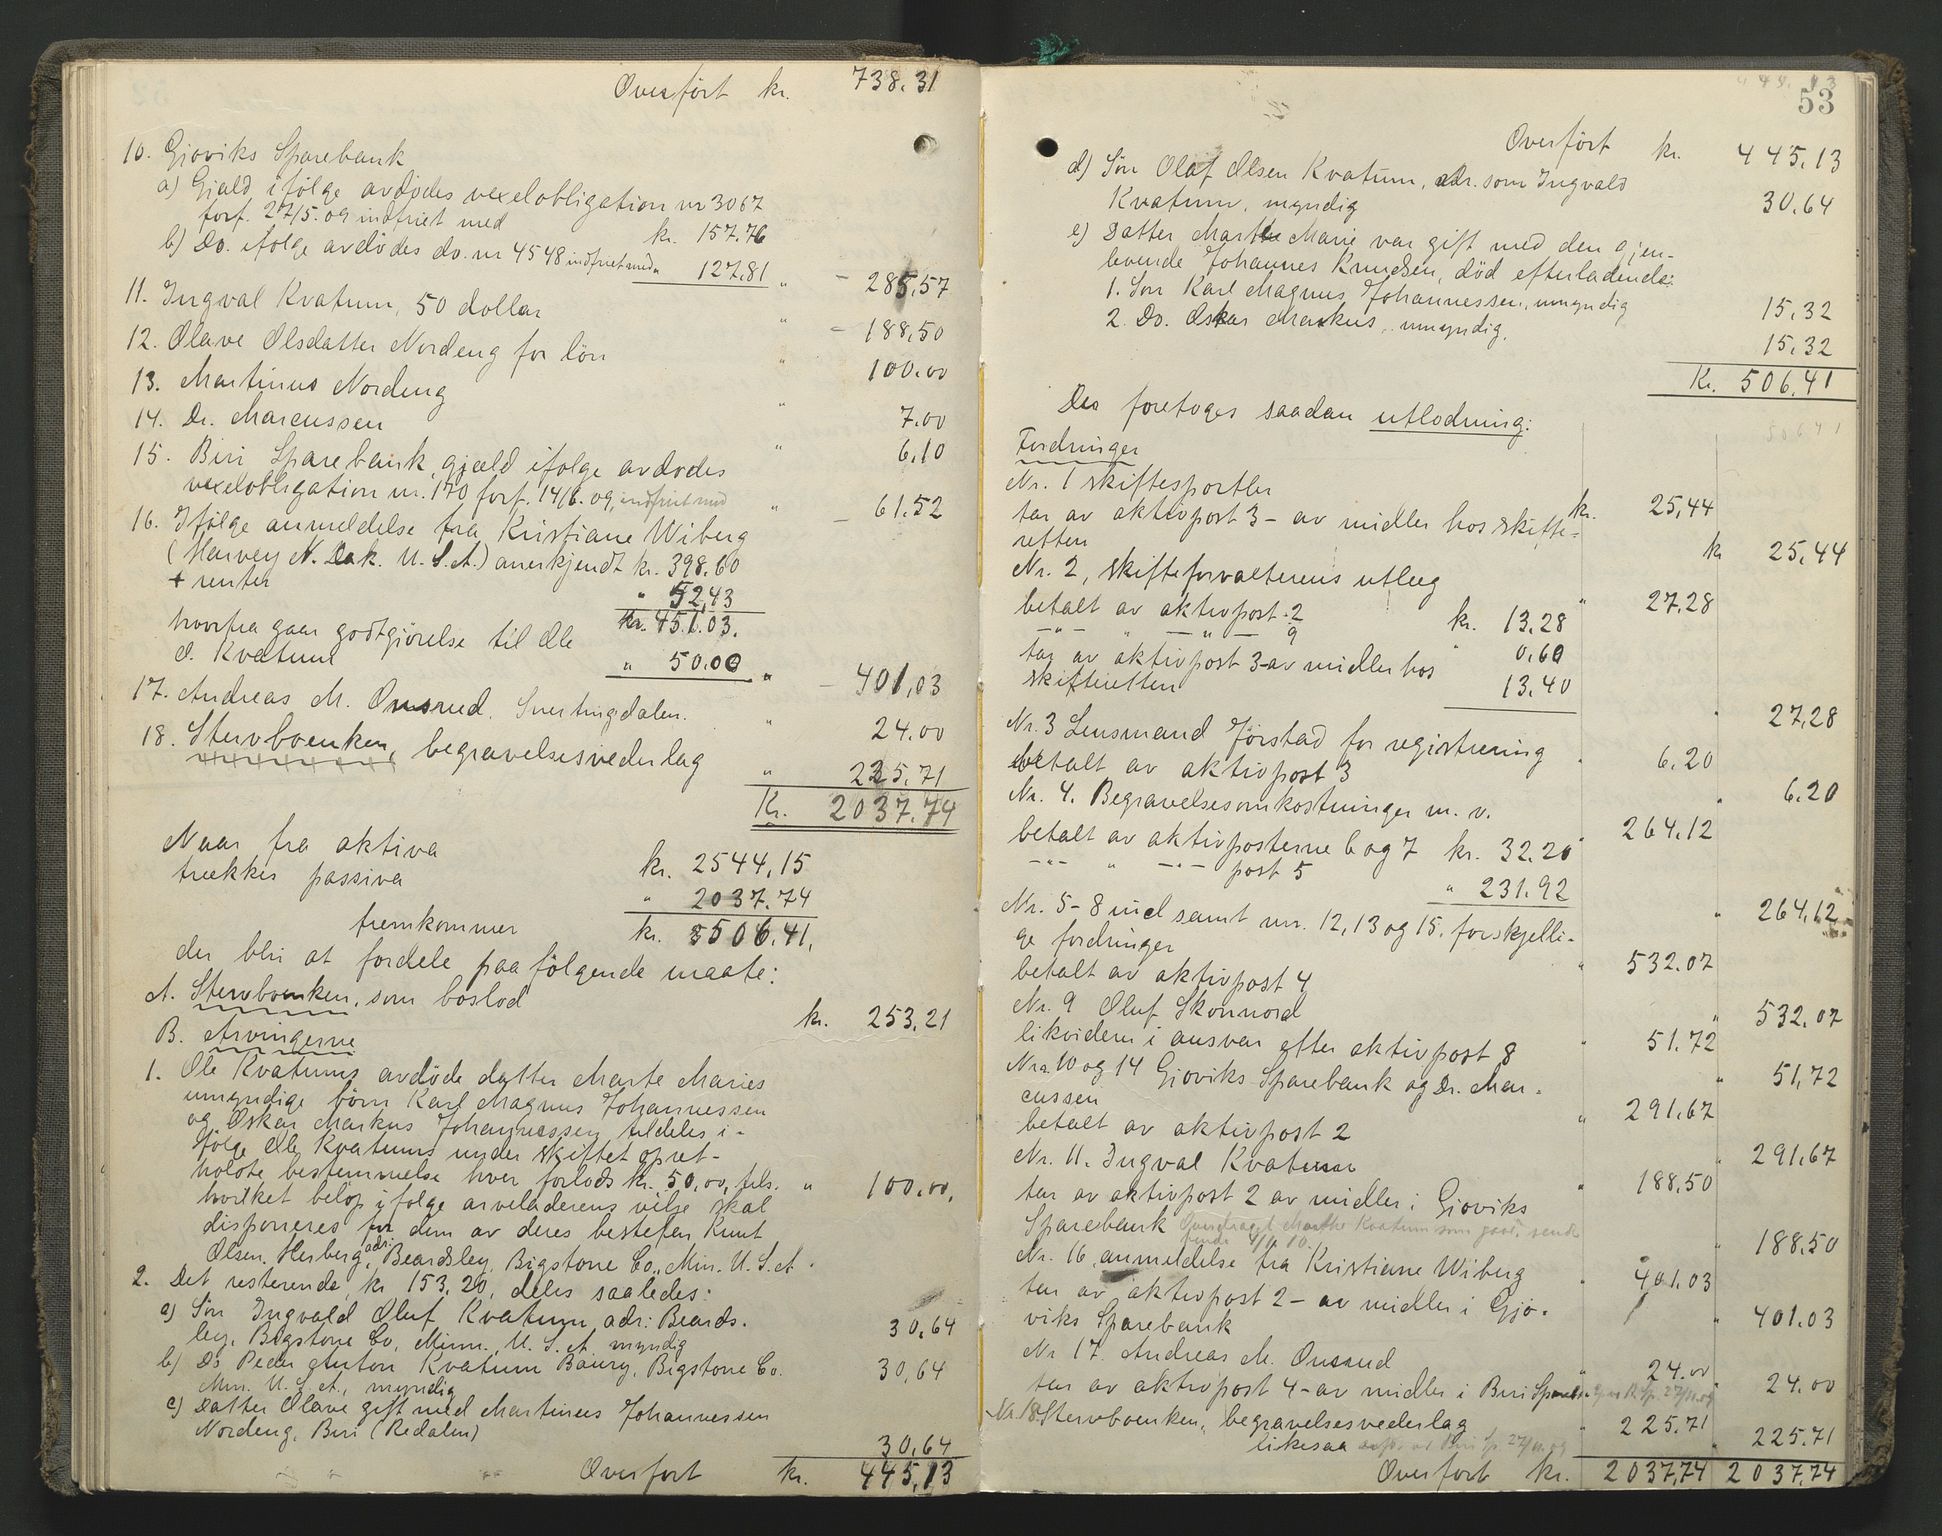 Overført kr. 738.31
10. Gjøviks Sparebank
a) Gjæld ifølge avdødes vexelobligation nr 3067
forf. 27/5.09 indfriet med kr. 157.76
b) Do. ifølge avdødes do. nr 4548 indfriet med " 127.81 " 285.57
11. Ingval Kvatum, 50 dollar " 188,50
12. Olave Olsdatter Nordeng for løn " 100.00
13. Martinus Nordeng " 7.00
14. Dr. Marcussen " 6.10
15. Biri Sparebank, gjæld ifølge avdødes
vexelobligation nr. 170 forf. 14/6.09, indfriet med " 61.52
16. Ifølge anmeldelse fra Kristiane Wiberg
(Harvey N. Dak. U.S.A.) anerkjendt kr. 398.60
+ renter " 52,43
kr. 451.03.
hvorfra gaar godtgjørelse til Ole
O. Kvatum " 50.00 " 401,03
17. Andreas M. Onsrud. Snertingdalen. " 24.00
18. Stervboenken, begravelsesvederlag " 225.71
Kr. 2037.74
Naar fra aktiva kr. 2544,15
trækkes passiva " 2037.74
fremkommer kr. 506.41,
der bli at fordele paa følgende maate:
A. Stervboenken, som boslod kr. 253.21
B. Arvingerne
1. Ole Kvatums avdøde datter Marte Maries
umyndige børn Karl Magnus Johannessen
og Oskar Markus Johannessen tildeles i-
følge Ole Kvatums under skiftet opret-
holdte bestemmelse hver forlods kr. 50,00, tils. " 100.00,
hvilket beløp ifølge arveladerens vilje skal
disponeres for dem av deres bestefar Knut
Olsen Herberg, adr: Beardsley, Bigstone Co., Min. U.S.A.
2. Det resterende, kr 153.20, deles saaledes:
a) Søn Ingvald Oluf Kvatum adr: Beards-
ley, Bigstone Co, Minn., U.S.A. myndig 30.64
b) Do Peder Anton Kvatum Barry, Bigstone Co.
Min. U.S.A., myndig 30,64
c) Datter Olave gift med Martinus Johannessen
Nordeng, Biri (Redalen) 30.64
Overført kr. 445,13
53
Overført kr. 445.13
d) Søn Olaf Olsen Kvatum, adr. som Ingvald
Kvatum, myndig 30.64
e) Datter Marthe Marie var gift med den gjen-
levende Johannes Knudsen, død efterladende:
1. Søn Karl Magnus Johannessen, umyndig 15,32
2. Do. Oskar Markus, umyndig. 15,32
Kr. 506,41
Der foretoges saadan utlodning:
Fordringer
Nr. 1 skiftesportler kr. 25,44
tar av aktivpost 3 - av midler hos skifte-
retten kr 25,44
Nr. 2, skifteforvalterens utlæg " 27,28
betalt av aktivpost 2 kr. 13.28
—"— " —"— 9 " 0,60
tar av aktivpost 3-av midler hos
skifteretten 13.40
" 27,28
Nr. 3 Lensmand Jørstad for registrering " 6.20
betalt av aktivpost 3 " 6.20
Nr. 4. Begravelsesomkostninger m. v. " 264.12
betalt av aktivposterne 6 og 7 kr. 32.20
—"— " —"— post 5 " 231.92
" 264,12
Nr. 5-8 incl samt nr. 12, 13 og 15. forskjelli-
ge fordringer " 532.07
betalt av aktivpost 4 " 532,07
Nr. 9 Oluf Skonnord " 51.72
likvideres i ansvar efter aktivpost 8 " 51,72
Nr. 10 og 14 Gjøviks Sparebank og Dr. Mar-
cussen " 291.67
betalt av aktivpost 2 " 291.67
Nr. 11. Ingval Kvatum " 188.50
tar av aktivpost 2 av midler i Gjøviks
Sparebank " 188.50
Nr. 16, anmeldelse fra Kristiane Wiberg " 401.03
tar av aktivpost 2 - av midler i Gjø-
viks Sparebank " 401.03
Nr 17. Andreas M. Onsrud " 24.00
tar av aktivpost 4-av midler i Biri Sparebk. 24.00
Nr. 18. Stervboenken, begravelsesvederlag " 225.71
likesaa " 225.71
Overført kr. 2037,74 2037,74